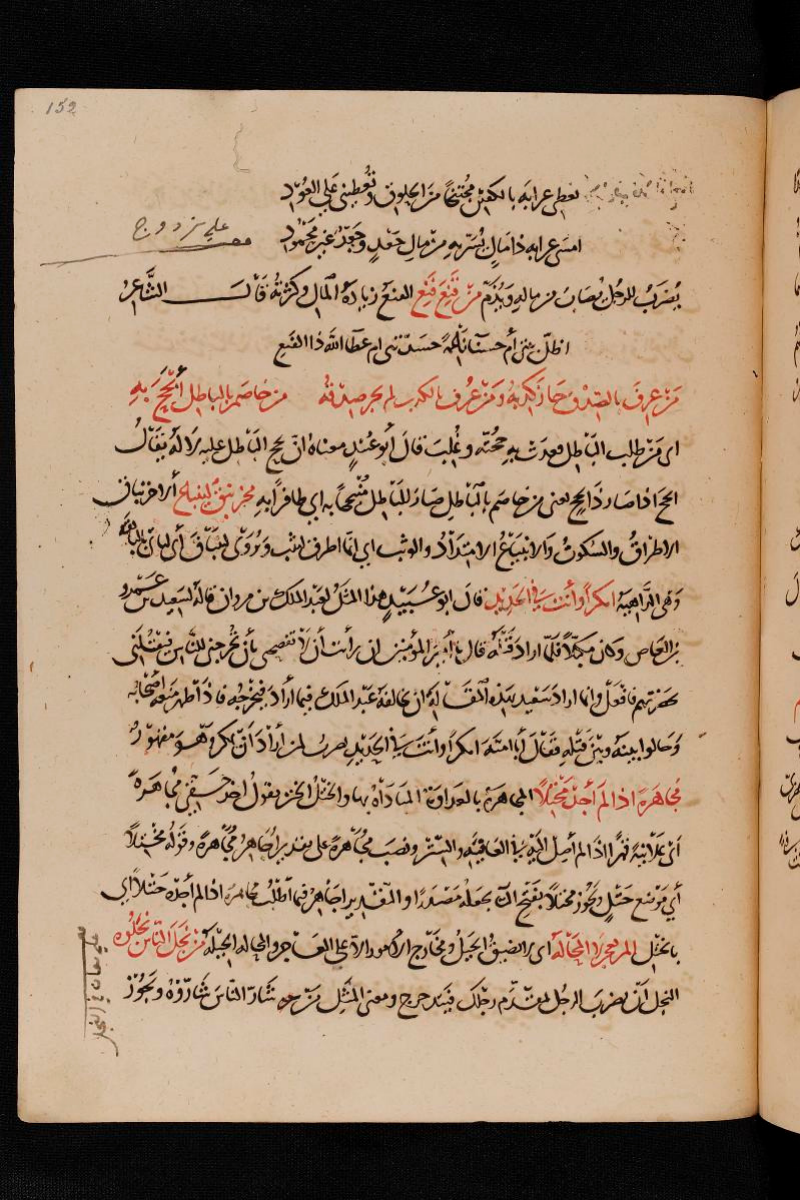 152
امسى عرابة ذا مال يسر به من مال جعد وجعد غير محمود
يضرب للرجل يصاب من ماله ويذم من قنع فنع الفنع زيادة المال وكثرته قالــ الشاعر
اظل بيتى أم حسنا ناعمة حسدتنى ام عطا الله ذا الفنع
من عرف بالصدق جاز كذبه ومن عرف بالكذب لم يجز صدقه من خاصم بالباطل أنجح به
اى من طلب الباطل قعدت به حجته وغلب قال أبو عبيد معناه ان نجح الباطل عليه لا له يقال
انجح اذا صار ذا نجح يعنى من خاصم بالباطل صار الباطل منجحا به اي ظافرا به مخرنبق لينباع الاخرنباق
الاطراق والسكوت والانبياع الامتداد والوثب اى انما اطرق ليثب ويروى لينباق أى ليأتى بالبائقة
وهى الداهية امكرا وأنت فى الحديد قال ابو عبيد هذا المثل لعبد الملك بن مروان قاله لسعيد بن عمرو
بن العاص وكان مكبلا فلما اراد قتله قال يا أمير المؤمنين ان رأيت أن لا تفضحنى بأن تخرجنى للناس فتقتلنى
بحضرتهم فافعل وانما اراد سعيد بهذه المقالة ان يخالفه عبد الملك فيما أراد فيخرجه فاذا ظهر منعه أصحابه
وحالوا بينه وبين قتله فقال أبا امية امكرا وأنت فى الحديد يضرب لمن أراد أن يمكر وهو مقهور
مجاهرة اذا لم أجد مختلا المجاهرة بالعداوة المباداة بها والختل الختر يقول اخذ حقى مجاهرة
أى علانية قهرا اذا لم أصل اليه فى العافية والستر ونصب مجاهرة على تقدير اجاهر مجاهرة وقوله مختلا
أي موضع ختل ويجوز مختلا بفتح التاء يجعله مصدرا والتقدير اجاهر فيما اطلب مجاهرة اذا لم أجده ختلا اي
بالختل المرء يعجز لا المحالة اى لا تضيق الحيل ومخارج الامور الا على العاجز والمحالة الحيلة من نجل الناس نجلوه
النجل ان تضرب الرجل بمقدم رجلك فيتدحرج ومعنى المثل من شار الناس شاروه ويجوز